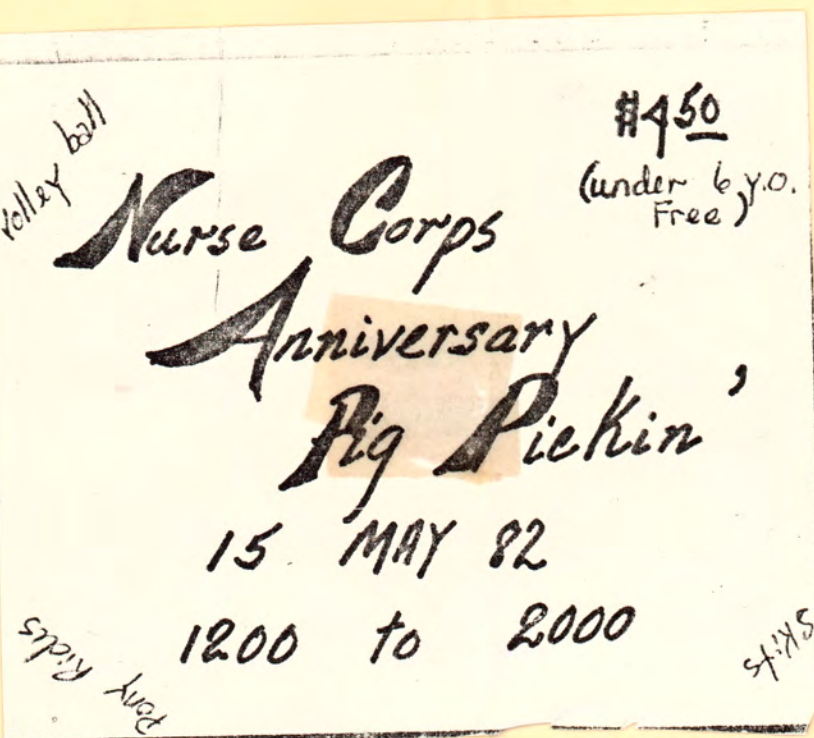 Volley ball
$4.50
(under 6 y.o.
Free)
Nurse Corps
Anniversary
Pig Pickin'
15 MAY 82
1200 to 2000
Pony Rides
Skits